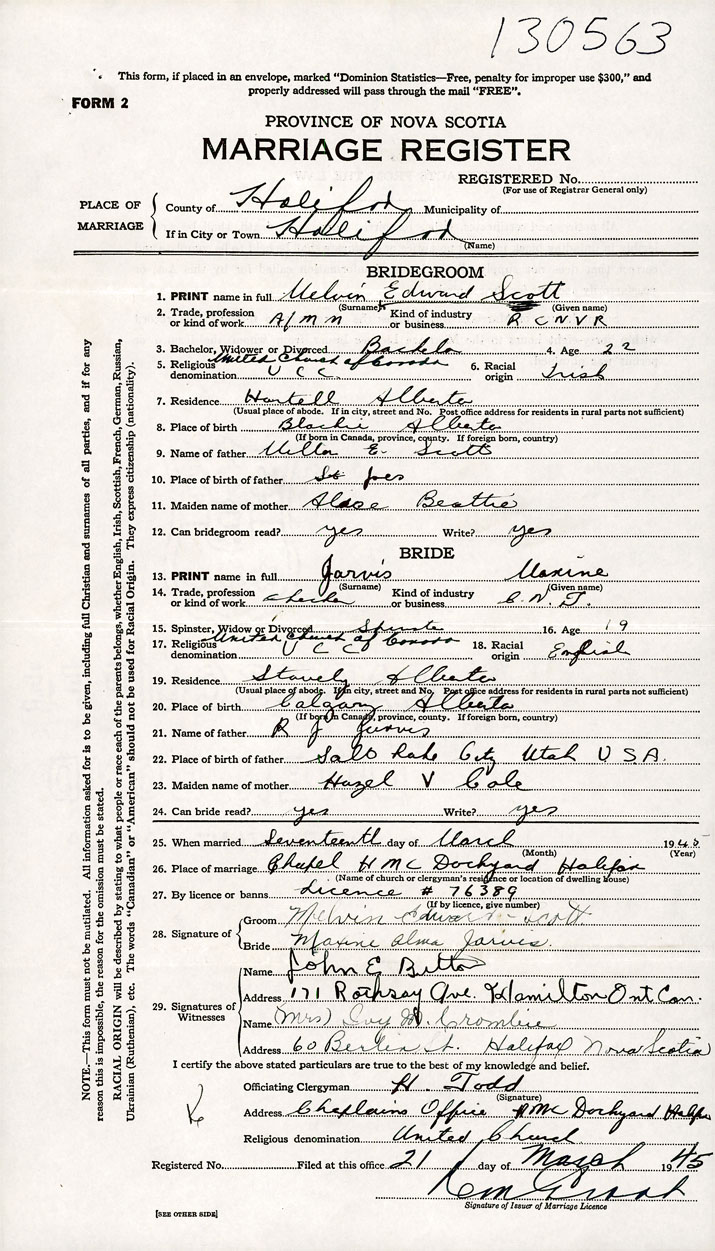 130563
This form, if placed in an envelope, marked “Dominion Statistics—Free, penalty for improper use $300,” and
properly addressed will pass through the mail “FREE”.
FORM 2
PROVINCE OF NOVA SCOTIA
MARRIAGE REGISTER
REGISTERED No.
(For use of Registrar General only)
PLACE OF MARRIAGE
County of Halifax Municipality of
If in City or Town Halifax
(Name)
BRIDEGROOM
1. PRINT name in full Melvin Edward Scott
(Surname) (Given name)
2. Trade, profession or kind of work A/M M Kind of industry or business R C N V R
3. Bachelor, Widower or Divorced Bachelor 4. Age 22
5. Religious denomination United Church of Canada U C C 6. Racial origin Irish
7. Residence Hartell Alberta
(Usual place of abode. If in city, street and No. Post office address for residents in rural parts not sufficient)
8. Place of birth Blackie Alberta
(If born in Canada, province, county. If foreign born, country)
9. Name of father E. Scott
10. Place of birth of father St Joes
11. Maiden name of mother Beattie
12. Can bridegroom read? yes Write? yes
BRIDE
13. PRINT name in full Jarvis Maxine
(Surname) (Given name)
14. Trade, profession or kind of work Checker Kind of industry or business C. N. T.
15. Spinster, Widow or Divorced 16. Age 19
17. Religious denomination United Church of Canada U C C 18. Racial origin English
19. Residence Stavely Alberta
(Usual place of abode. If in city, street and No. Post office address for residents in rural parts not sufficient)
20. Place of birth Calgary Alberta
(If born in Canada, province, county. If foreign born, country)
21. Name of father R J Jarvis
22. Place of birth of father Salt Lake City Utah U S A.
23. Maiden name of mother Hazel V Cole
24. Can bride read? yes Write? yes
25. When married Seventeenth day of March 1945
(Month) (Year)
26. Place of marriage Chapel H M C Dockyard Halifax
(Name of church or clergyman's residence or location of dwelling house)
27. By licence or banns Licence # 76389
(If by licence, give number)
28. Signature of
Groom Melvin Edward Scott
Bride Maxine Alma Jarvis.
29. Signatures of Witnesses
Name John E
Address 171 Rothsay Ave. Hamilton Ont. Can.
Name (Mrs) Ivy M. Crombie
Address 60 Berlin St. Halifax Nova Scotia
I certify the above stated particulars are true to the best of my knowledge and belief.
Officiating Clergyman H. Todd
(Signature)
Address Chaplains Office HMC Dockyard Halifax
Religious denomination United Church
Registered No. Filed at this office 21 day of March 1945
Signature of Issuer of Marriage Licence
[SEE OTHER SIDE]
NOTE.—This form must not be mutilated. All information asked for is to be given, including full Christian and surnames of all parties, and if for any
reason this is impossible, the reason for the omission must be stated.
RACIAL ORIGIN will be described by stating to what people or race each of the parents belongs, whether English, Irish, Scottish, French, German, Russian,
Ukrainian (Ruthenian), etc. The words “Canadian” or “American” should not be used for Racial Origin. They express citizenship (nationality).